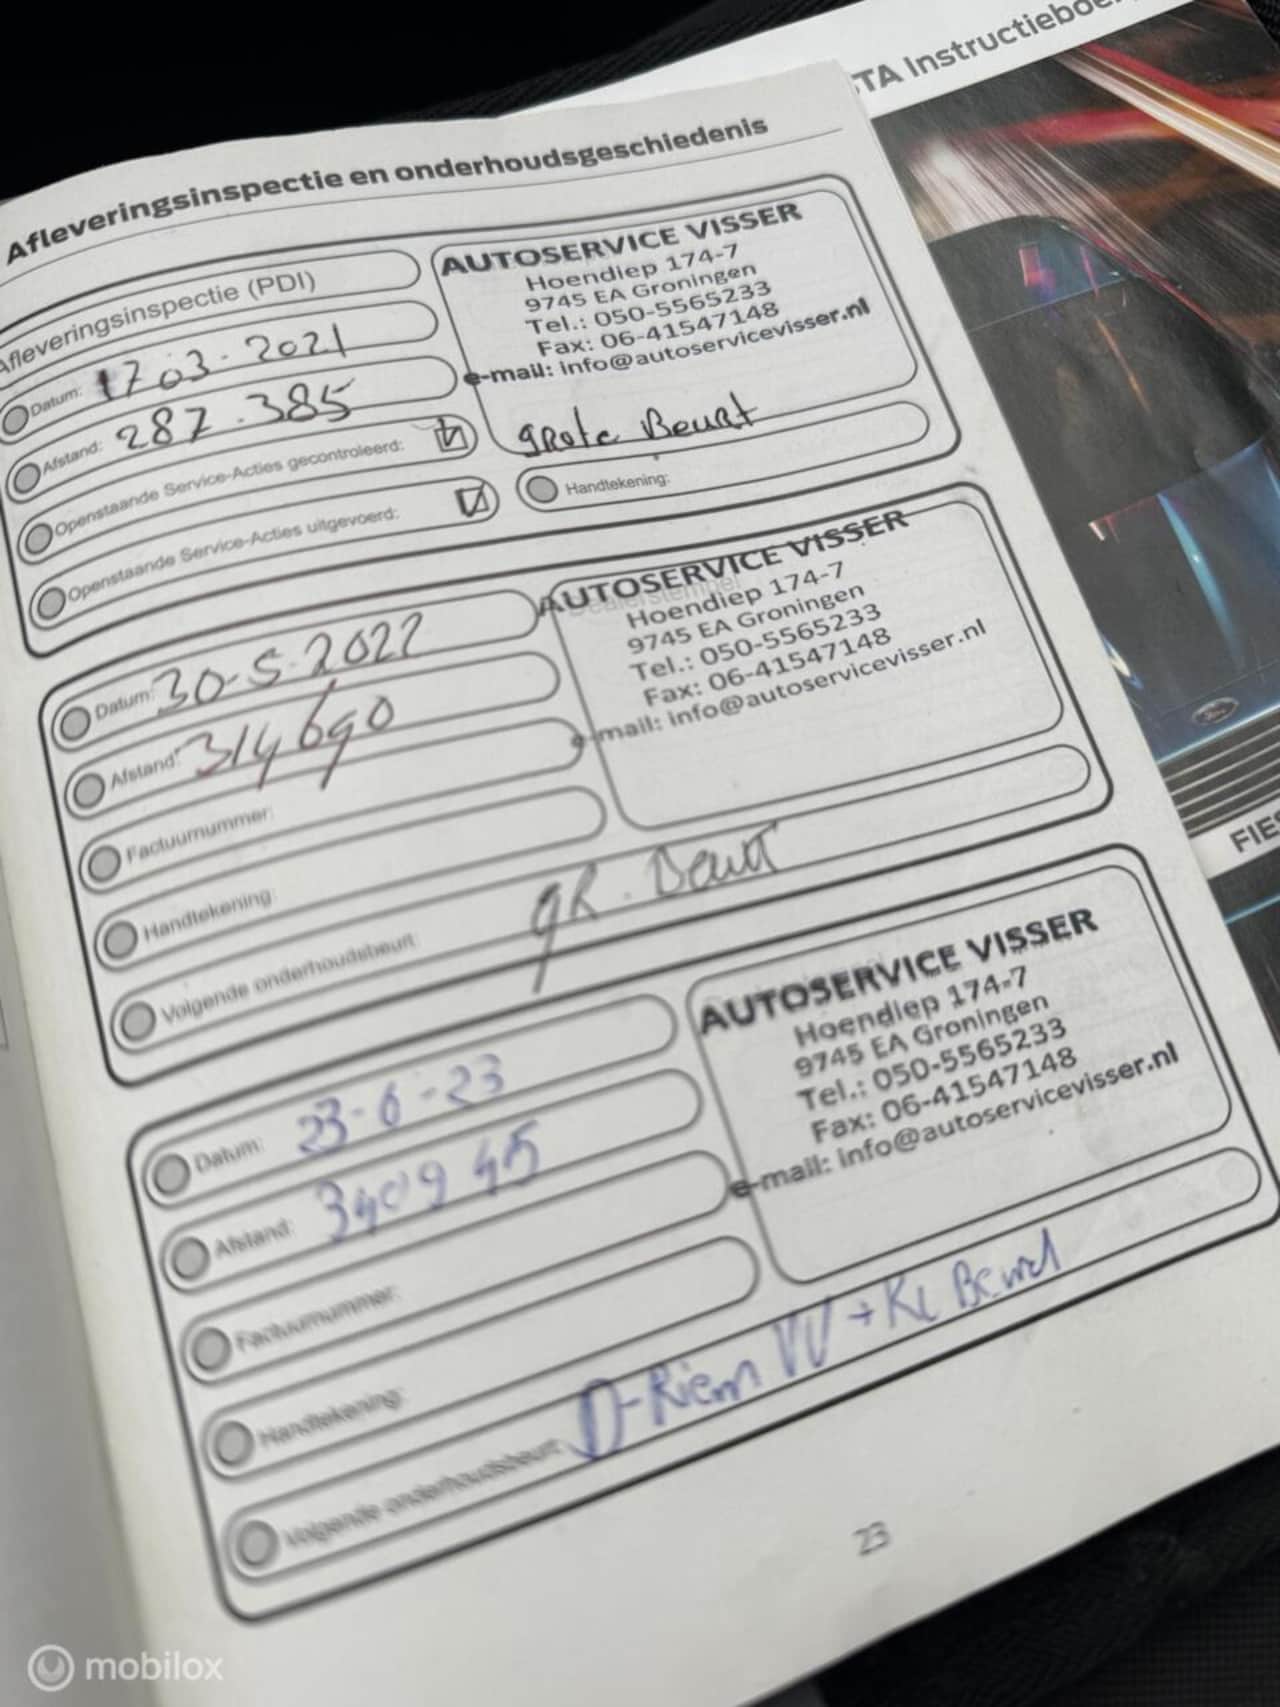 STA Instructieboe
Afleveringsinspectie en onderhoudsgeschiedenis
Afleveringsinspectie (PDI)
Datum: 17 03 - 2021
Afstand: 287.385
Openstaande Service-Acties gecontroleerd:
Openstaande Service-Acties uitgevoerd:
AUTOSERVICE VISSER
Hoendiep 174-7
9745 EA Groningen
Tel.: 050-5565233
Fax: 06-41547148
e-mail: info@autoservicevisser.nl
grote Beurt
Handtekening:
Datum: 30-5-2022
Afstand: 314690
Factuurnummer:
Handtekening:
Volgende onderhoudsbeurt: gR. Beurt
AUTOSERVICE VISSER
Hoendiep 174-7
9745 EA Groningen
Tel.: 050-5565233
Fax: 06-41547148
e-mail: info@autoservicevisser.nl
Datum: 23-6-23
Afstand: 340945
Factuurnummer:
Handtekening:
Volgende onderhoudsbeurt: D-Riem VV + KL Beurt
AUTOSERVICE VISSER
Hoendiep 174-7
9745 EA Groningen
Tel.: 050-5565233
Fax: 06-41547148
e-mail: info@autoservicevisser.nl
23
Ford
FIES
mobilox